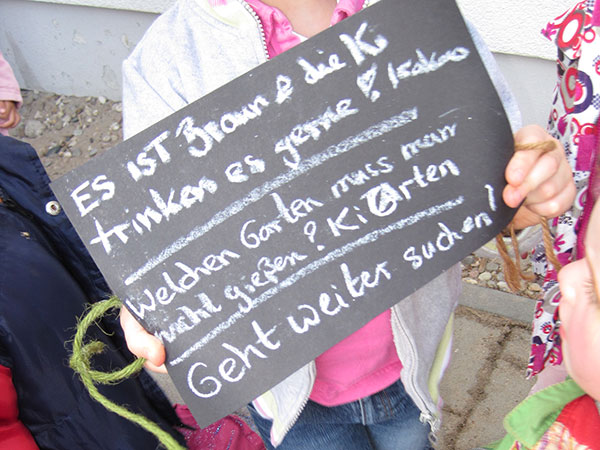 ES iST Braun & die Ki
trinken es gerne? Kakao
Welchen Garten muss man
nicht gießen? KiGarten
Geht weiter suchen!